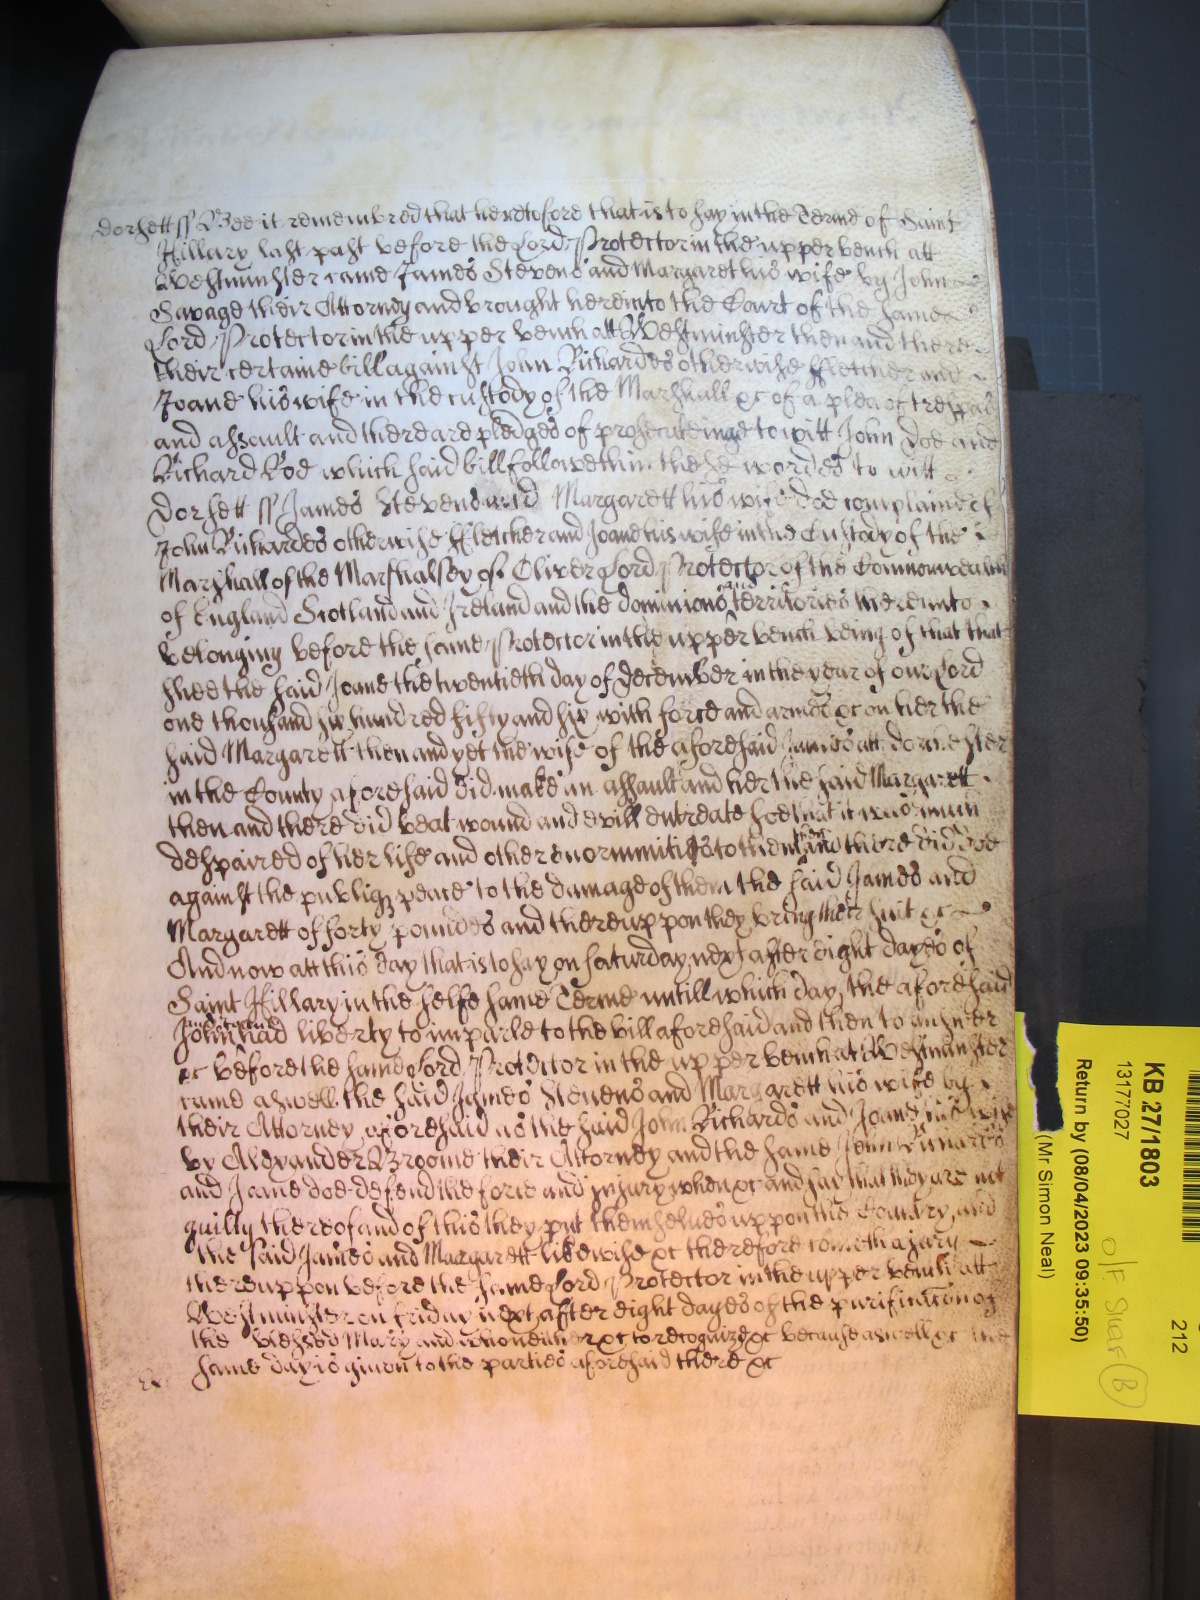 Dorsett ss Bee it remembred that heretofore that is to say in the Terme of Saint
Hillary last past before the Lord Protector in the upper bench att
Westminster came James Stevens and Margarett his wife by John
Savage their Attorney and brought here into the Court of the same
Lord Protector in the upper bench att Westminster then and there
their certaine bill against John Richardes otherwise Fletcher and
Joane his wife in the custody of the Marshall &c of a plea of trespas
and assault and there are pledges of prosecuteinge to witt John Doe and
Richard Roe which said bill followeth in these wordes to witt
Dorsett ss James Stevens and Margarett his wife doe complaine of
John Richardes otherwise Fletcher and Joane his wife in the Custody of the
Marshall of the Marshalsey of Oliver Lord Protector of the Commonwealth
of England Scotland and Ireland and the dominions and territories thereunto
belonging before the same Protector in the upper bench being of that that
shee the said Joane the twentieth day of December in the year of our Lord
one thousand six hundred fifty and six with force and armes &c on her the
said Margarett then and yet the wife of the aforesaid James att Dorchester
in the County aforesaid did make an assault and her the said Margarett
then and there did beat wound and evill entreate soe that it was much
despaired of her life and other enormmities to them then and there did doe
against the publiq peace to the damage of them the said James and
Margarett of forty poundes and thereuppon they bring their suit &c
And now att this day that is to say on Saturday next after eight dayes of
Saint Hillary in the selfe same Terme untill which day the aforesaid
John and Joane had liberty to imparle to the bill aforesaid and then to answer
&c before the same Lord Protector in the upper bench at Westminster
came aswell the said James Stevens and Margarett his wife by
their Attorney aforesaid as the said John Richards and Joane his wife
by Alexander Broome their Attorney and the same John Richardes
and Joane doe defend the force and injury when &c and say that they are not
guilty thereof and of this they put themselves uppon the Country and
the said James and Margarett likewise &c therefore cometh a jury
thereuppon before the same Lord Protector in the upper bench att
Westminster on Friday next after eight dayes of the purificacon of
the blessed Mary and who neither &c to recognize &c because aswell &c the
same day is given to the parties aforesaid there &c
KB 27/1803
13177027
Return by (08/04/2023 09:35:50)
(Mr Simon Neal)
212
O/F Shelf B